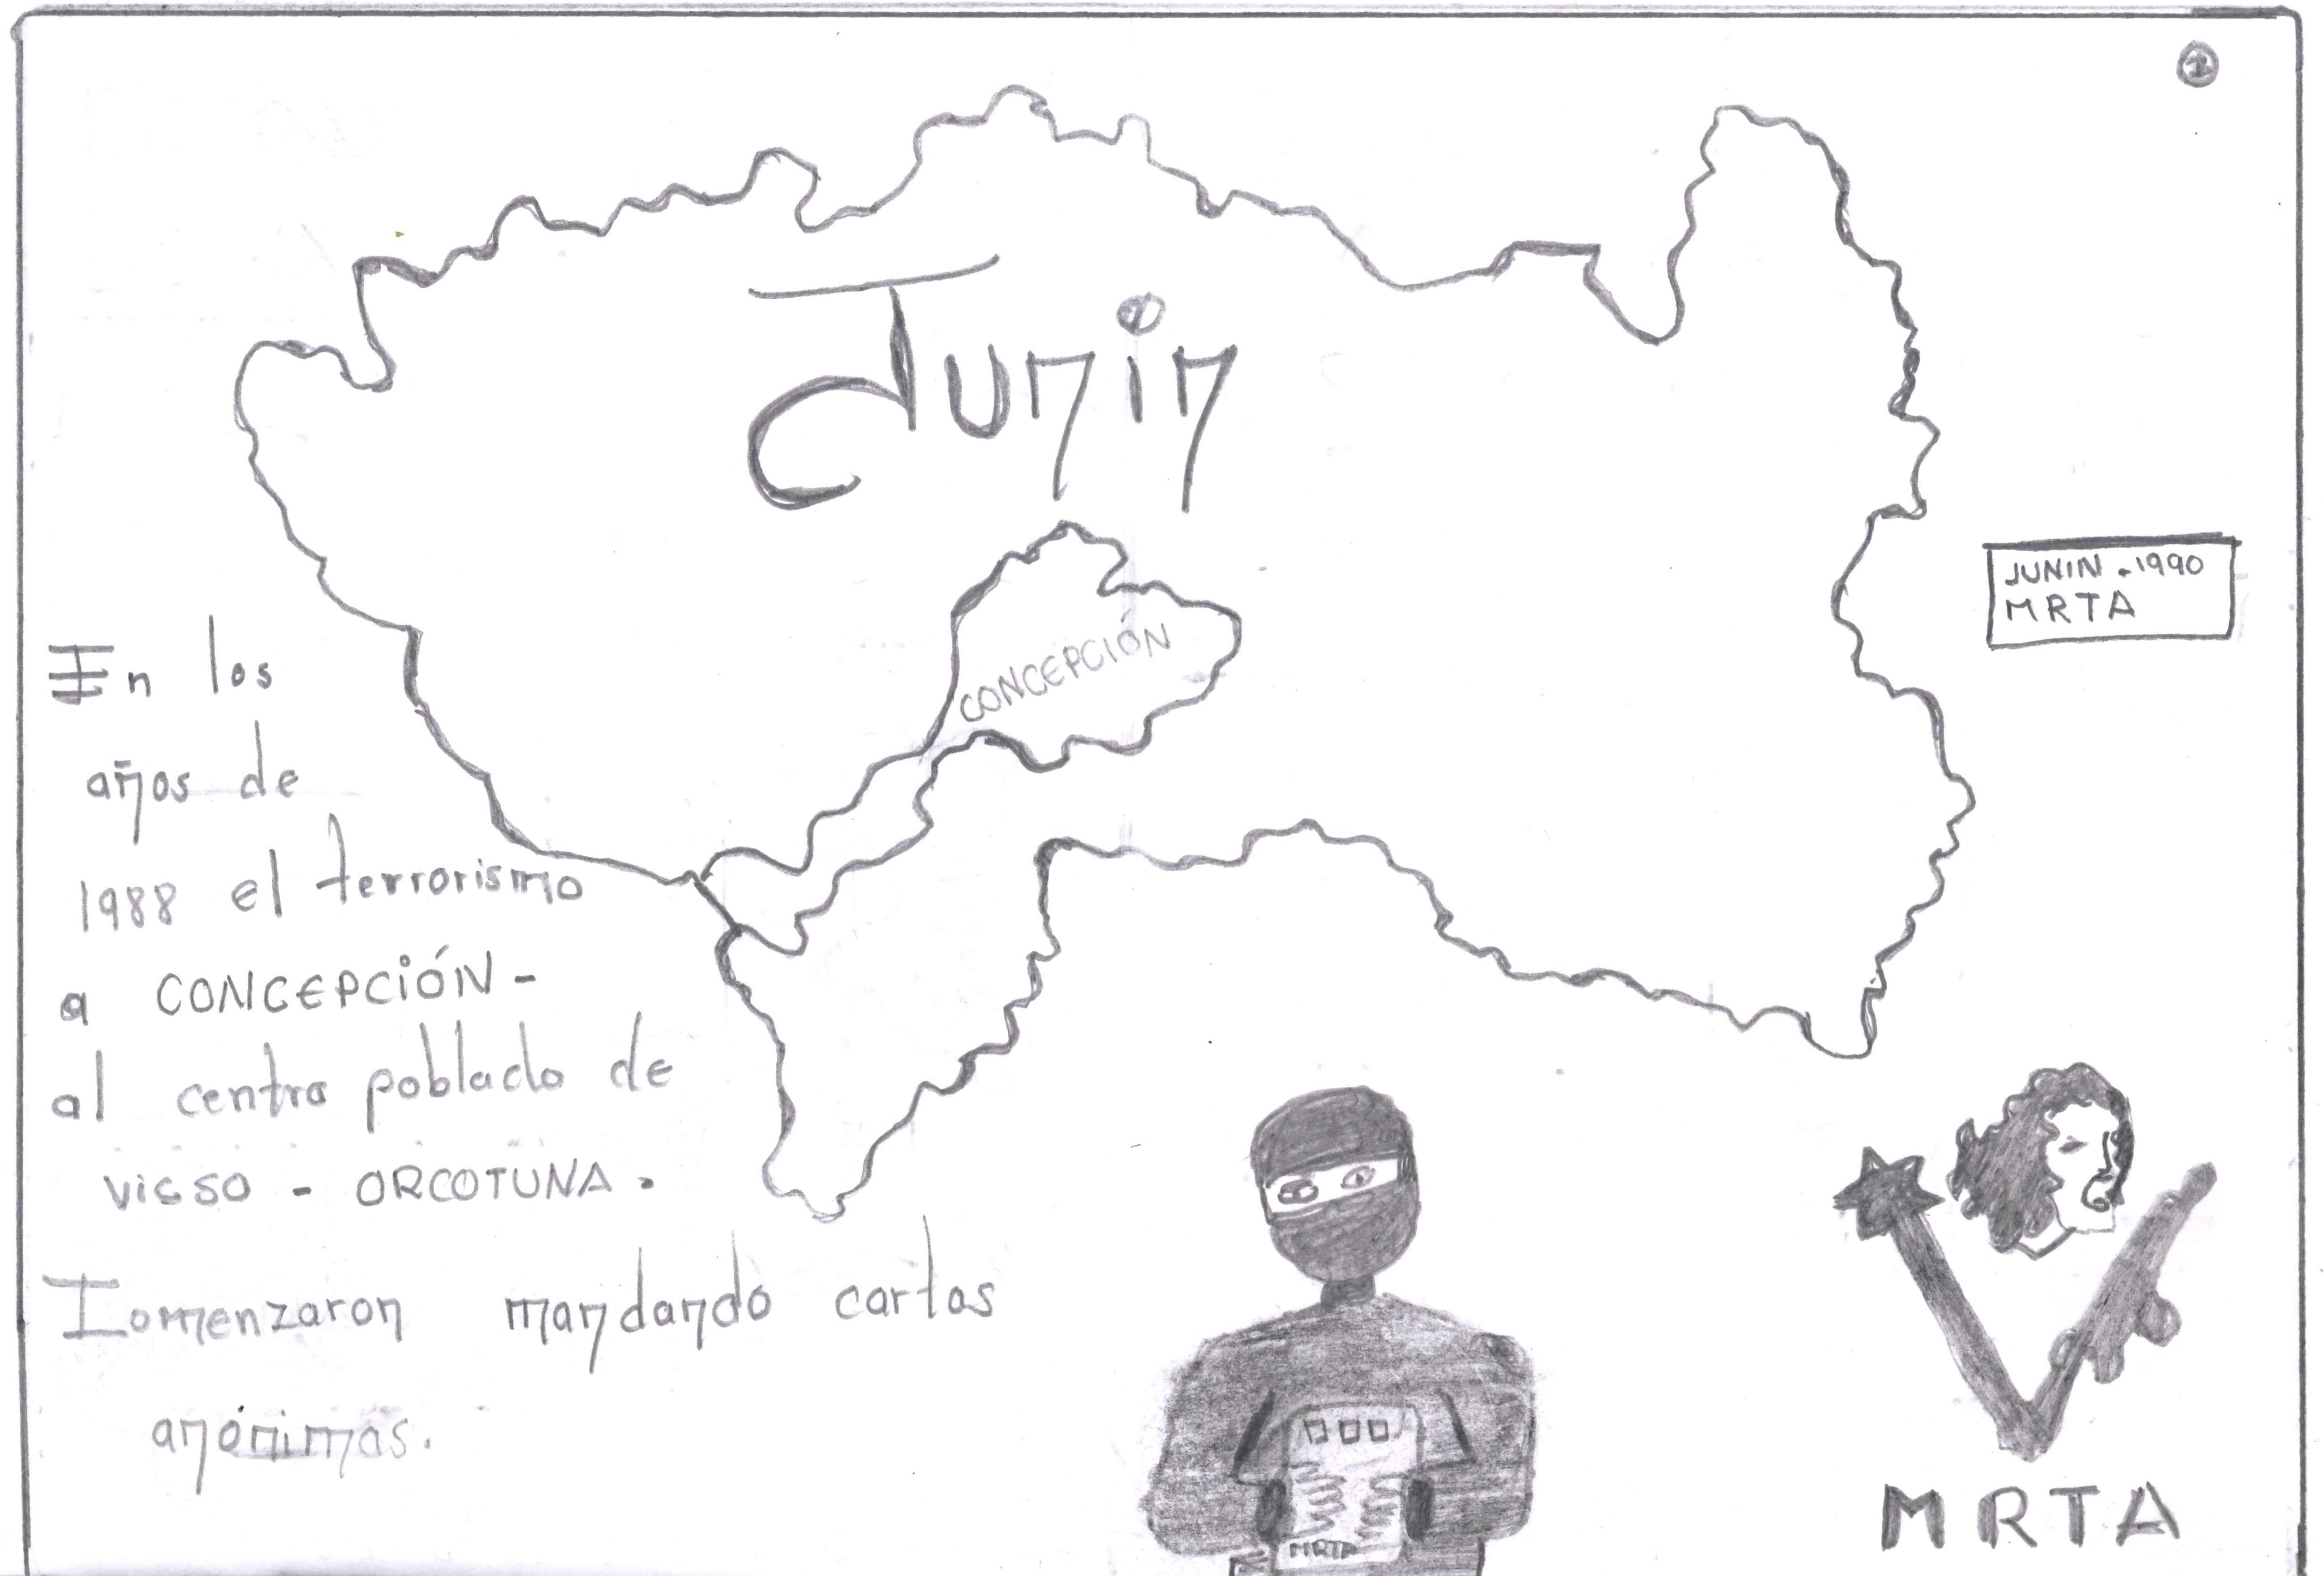 1
Junin
CONCEPCIÓN
JUNIN - 1990
MRTA
En los
años de
1988 el terrorismo
a CONCEPCIÓN -
al centro poblado de
VICSO - ORCOTUNA.
Comenzaron mandando cartas
anónimas.
MRTA
MRTA